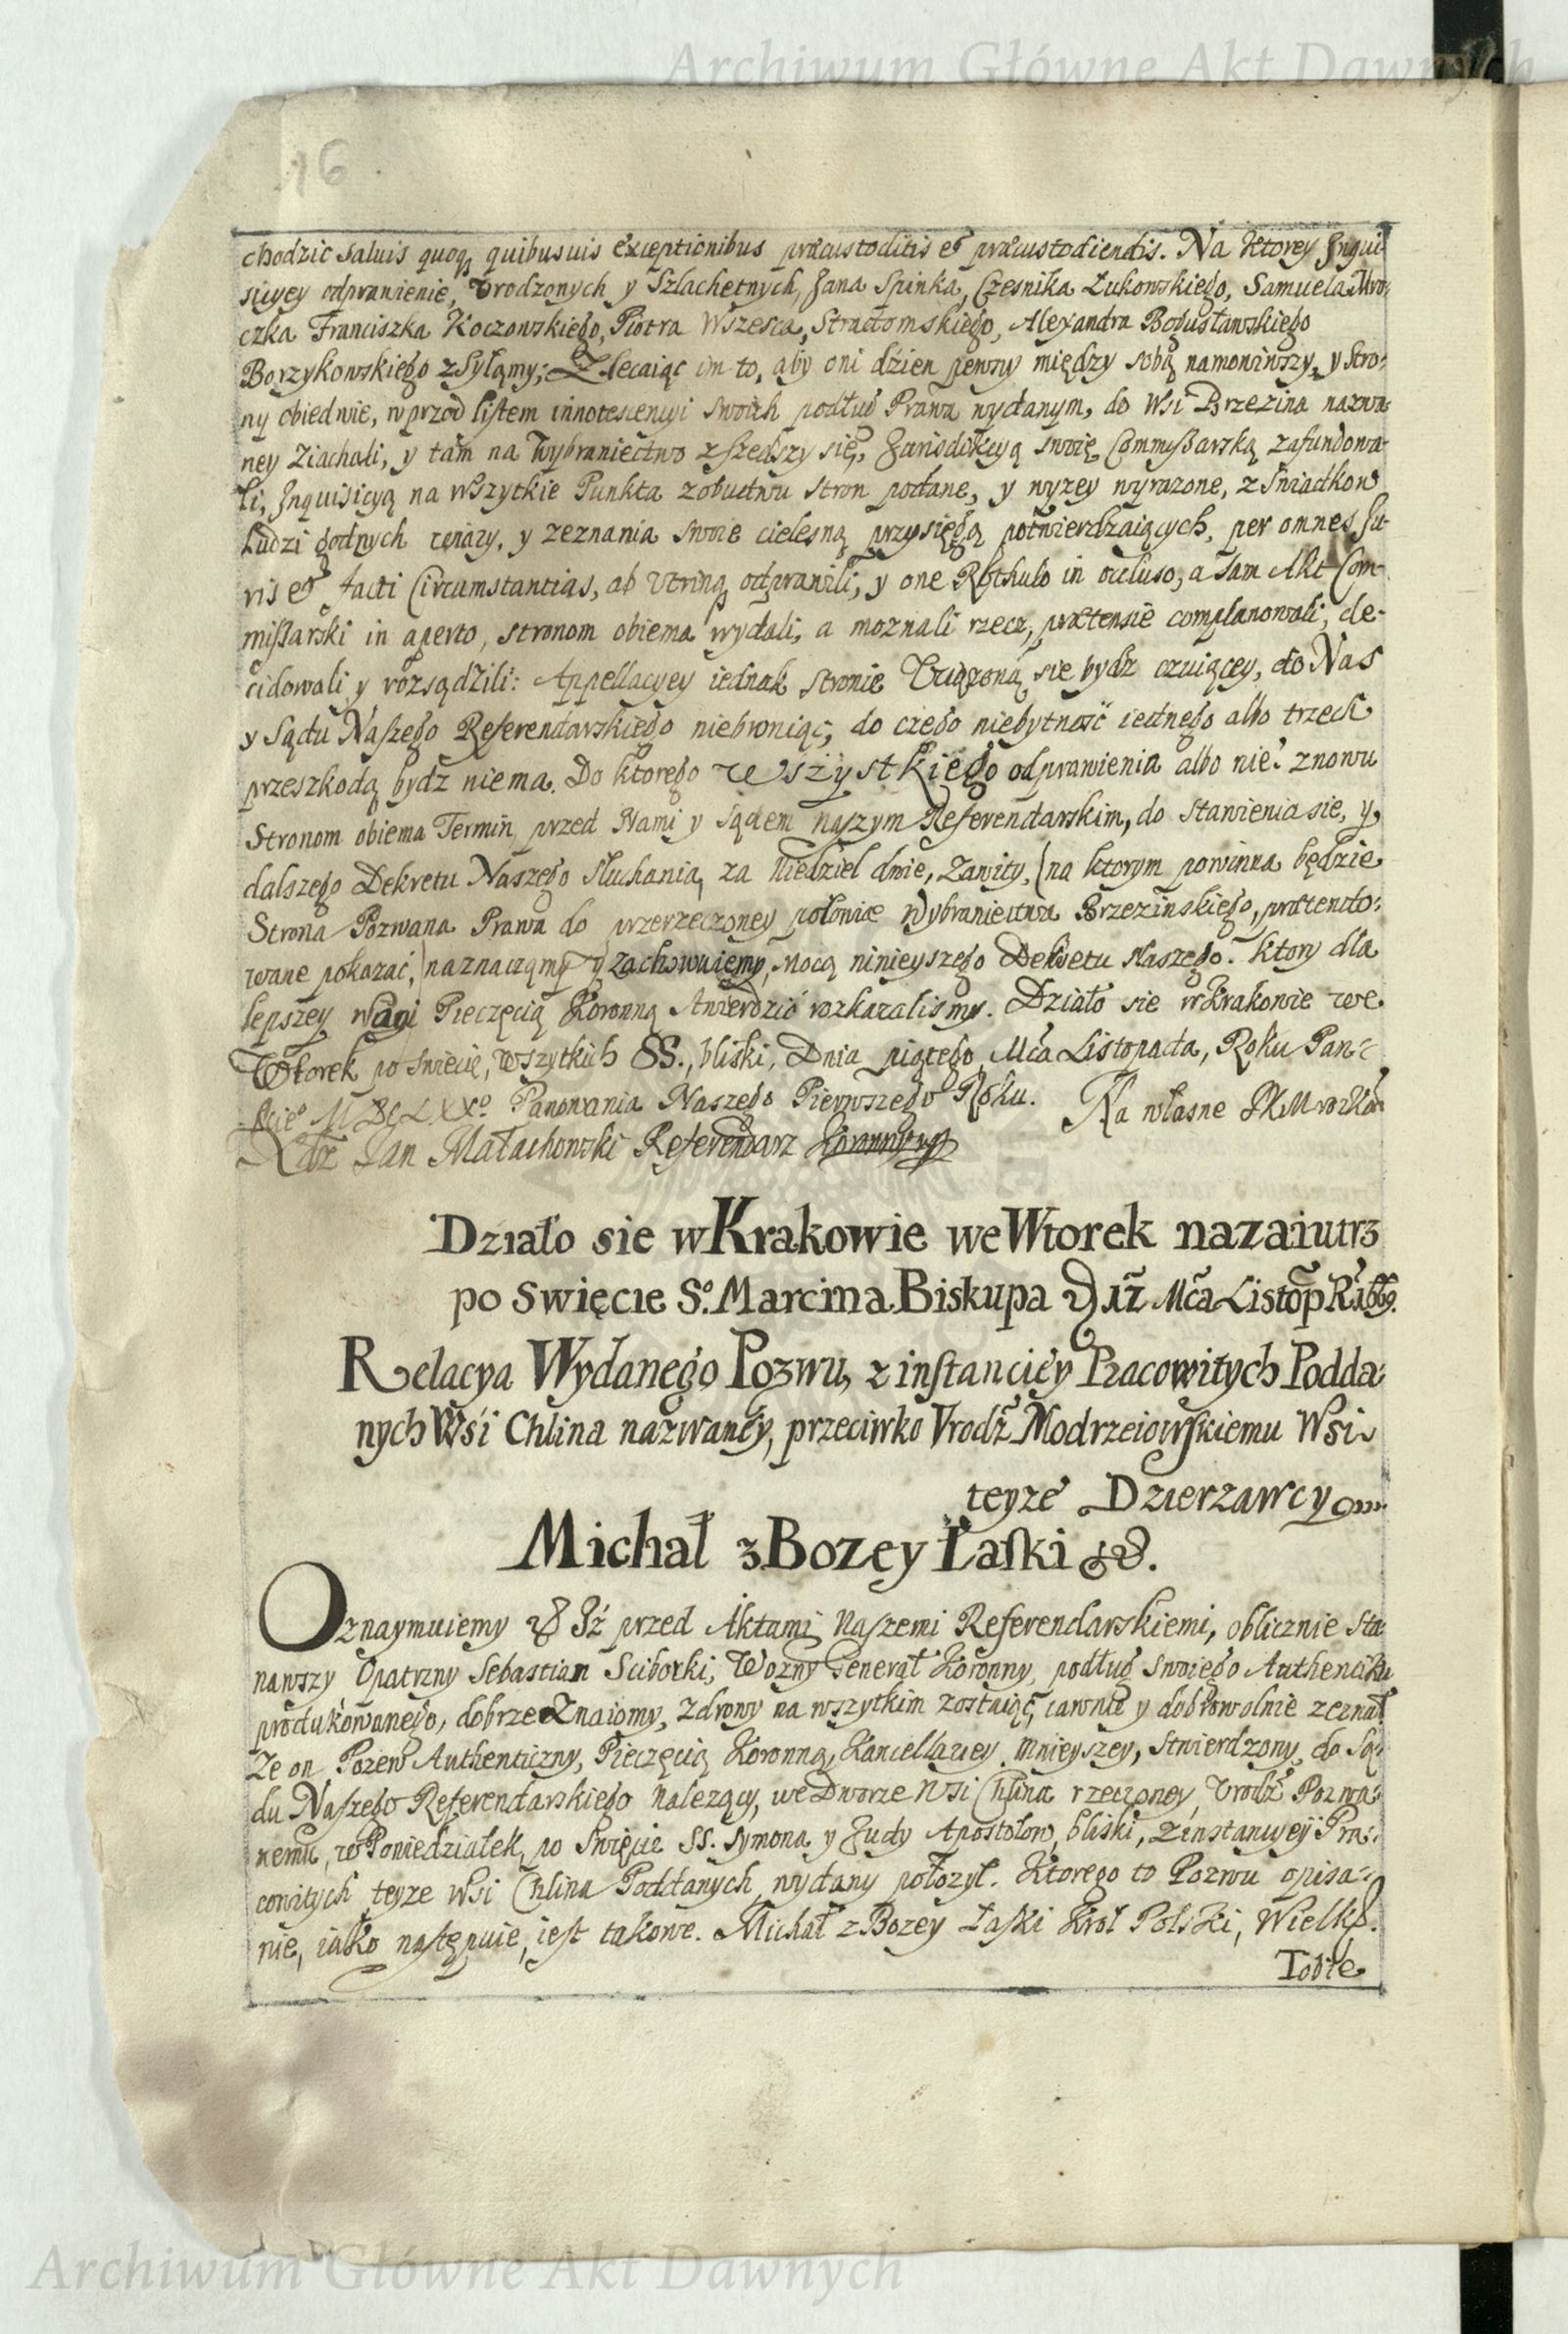 Archiwum Główne Akt Dawnych
16
chodzić saluis quoq quibusuis exceptionibus præcustoditis et præcustodiendis. Na ktorey Inqui
sicyey odprawienie, Vrodzonych y Szlachetnych, Jana Spinka, Czesnika Łukowskiego, Samuela Mro,
czka Franciszka Koczowskiego, Piotra Wszesca, Stradomskiego, Alexandra Bogusławskiego
Borzykowskiego zsyłamy; Zlecaiąc im to, aby oni dzien pewny między sobą namowiwszy, y Stro:
ny obiedwie, wprzod listem innotescencyi swoich podług Prawa wydanym, do Wsi Brzezina nazwa
ney Ziachali, y tam na Wybraniectwo zszedszy się, Jurisdikcyą swoię Commyssarską zafundowa
li, Inquisicyą na wszytkie Punkta zobudwu stron podane, y wyzey wyrazone, z Swiadkow
Ludzi godnych wiary, y zeznania swoie cielesną przysięgą potwierdzaiących, per omnes Ju-
ris et facti Circumstantias, ab vtrinq odprawili, y one Rothulo in occluso, a sam Akt Com-
missarski in aperto, stronom obiema wydali, a moznali rzecz, prætensie complanowali, de-
cidowali y rozsądzili: Appellacyey iednak stronie Vciązoną się bydz czuiącey, do Nas
y Sądu Naszego Referendarskiego niebroniąc; do czego niebytność iednego albo trzech
przeszkodą bydz niema. Do ktorego wszystkiego odprawienia albo nie. znowu
Stronom obiema Termin przed Nami y Sądem naszym Referendarskim, do stawienia sie, y
dalszego Dekretu Naszego słuchania, za Niedziel dwie, Zawity, (na ktorym powinna będzie
Strona Pozwana Prawa do przerzeczoney połowice Wybraniectwa Brzezinskiego, prætendo:
wane pokazać,) naznaczamy y zachowuiemy, Mocą ninieyszego Dekretu Naszego. ktory dla
lepszey wagi Pieczęcią Koronną stwierdzić rozkazalismy. Działo sie w Krakowie we
Wtorek po swiecie, wszytkich SS., bliski, Dnia piątego Mca Listopada, Roku Pan:
Panowania Naszego Pierwszego Roku. Na własne JKM
Jan Małachowski Referendarz Koronny
Działo sie w Krakowie we Wtorek nazaiutrz
po Swięcie So. Marcina Biskupa D 12 Mca Listop R. 1669.
Relacya Wydanego Pozwu, z instanciey Pracowitych Podda:
nych Wsi Chlina nazwaney, przeciwko Vrodz Modrzeiowskiemu Wsi
teyze Dzierzawcy
Michał z Bozey Łaski &.
Oznaymuiemy & Iż przed Aktami Naszemi Referendarskiemi, oblicznie sta
nawszy Opatrzny Sebastian Sciborski, Wozny Generał Koronny, podług swoiego Authentiku
produkowanego, dobrze Znaiomy, Zdrowy na wszytkim zostaiąc, iawnie y dobrowolnie zeznał
Ze on Pozew Authenticzny, Pieczęcią Koronną, Kancellaryey Mnieyszey, stwierdzony, do Są:
du Naszego Referendarskiego nalezący, we Dworze Wsi Chlina rzeczoney, Vrodz Pozwa:
nemu, w Poniedziałek, po Swięcie SS. Symona y Judy Apostołow, bliski, z instancyey Pra:
cowitych teyze Wsi Chlina Poddanych wydany połozył. Ktorego to Pozwu opisa:
nie, iako następuie, iest takowe. Michał z Bozey Łaski Krol Polski, Wielk.
Tobie
Archiwum Główne Akt Dawnych